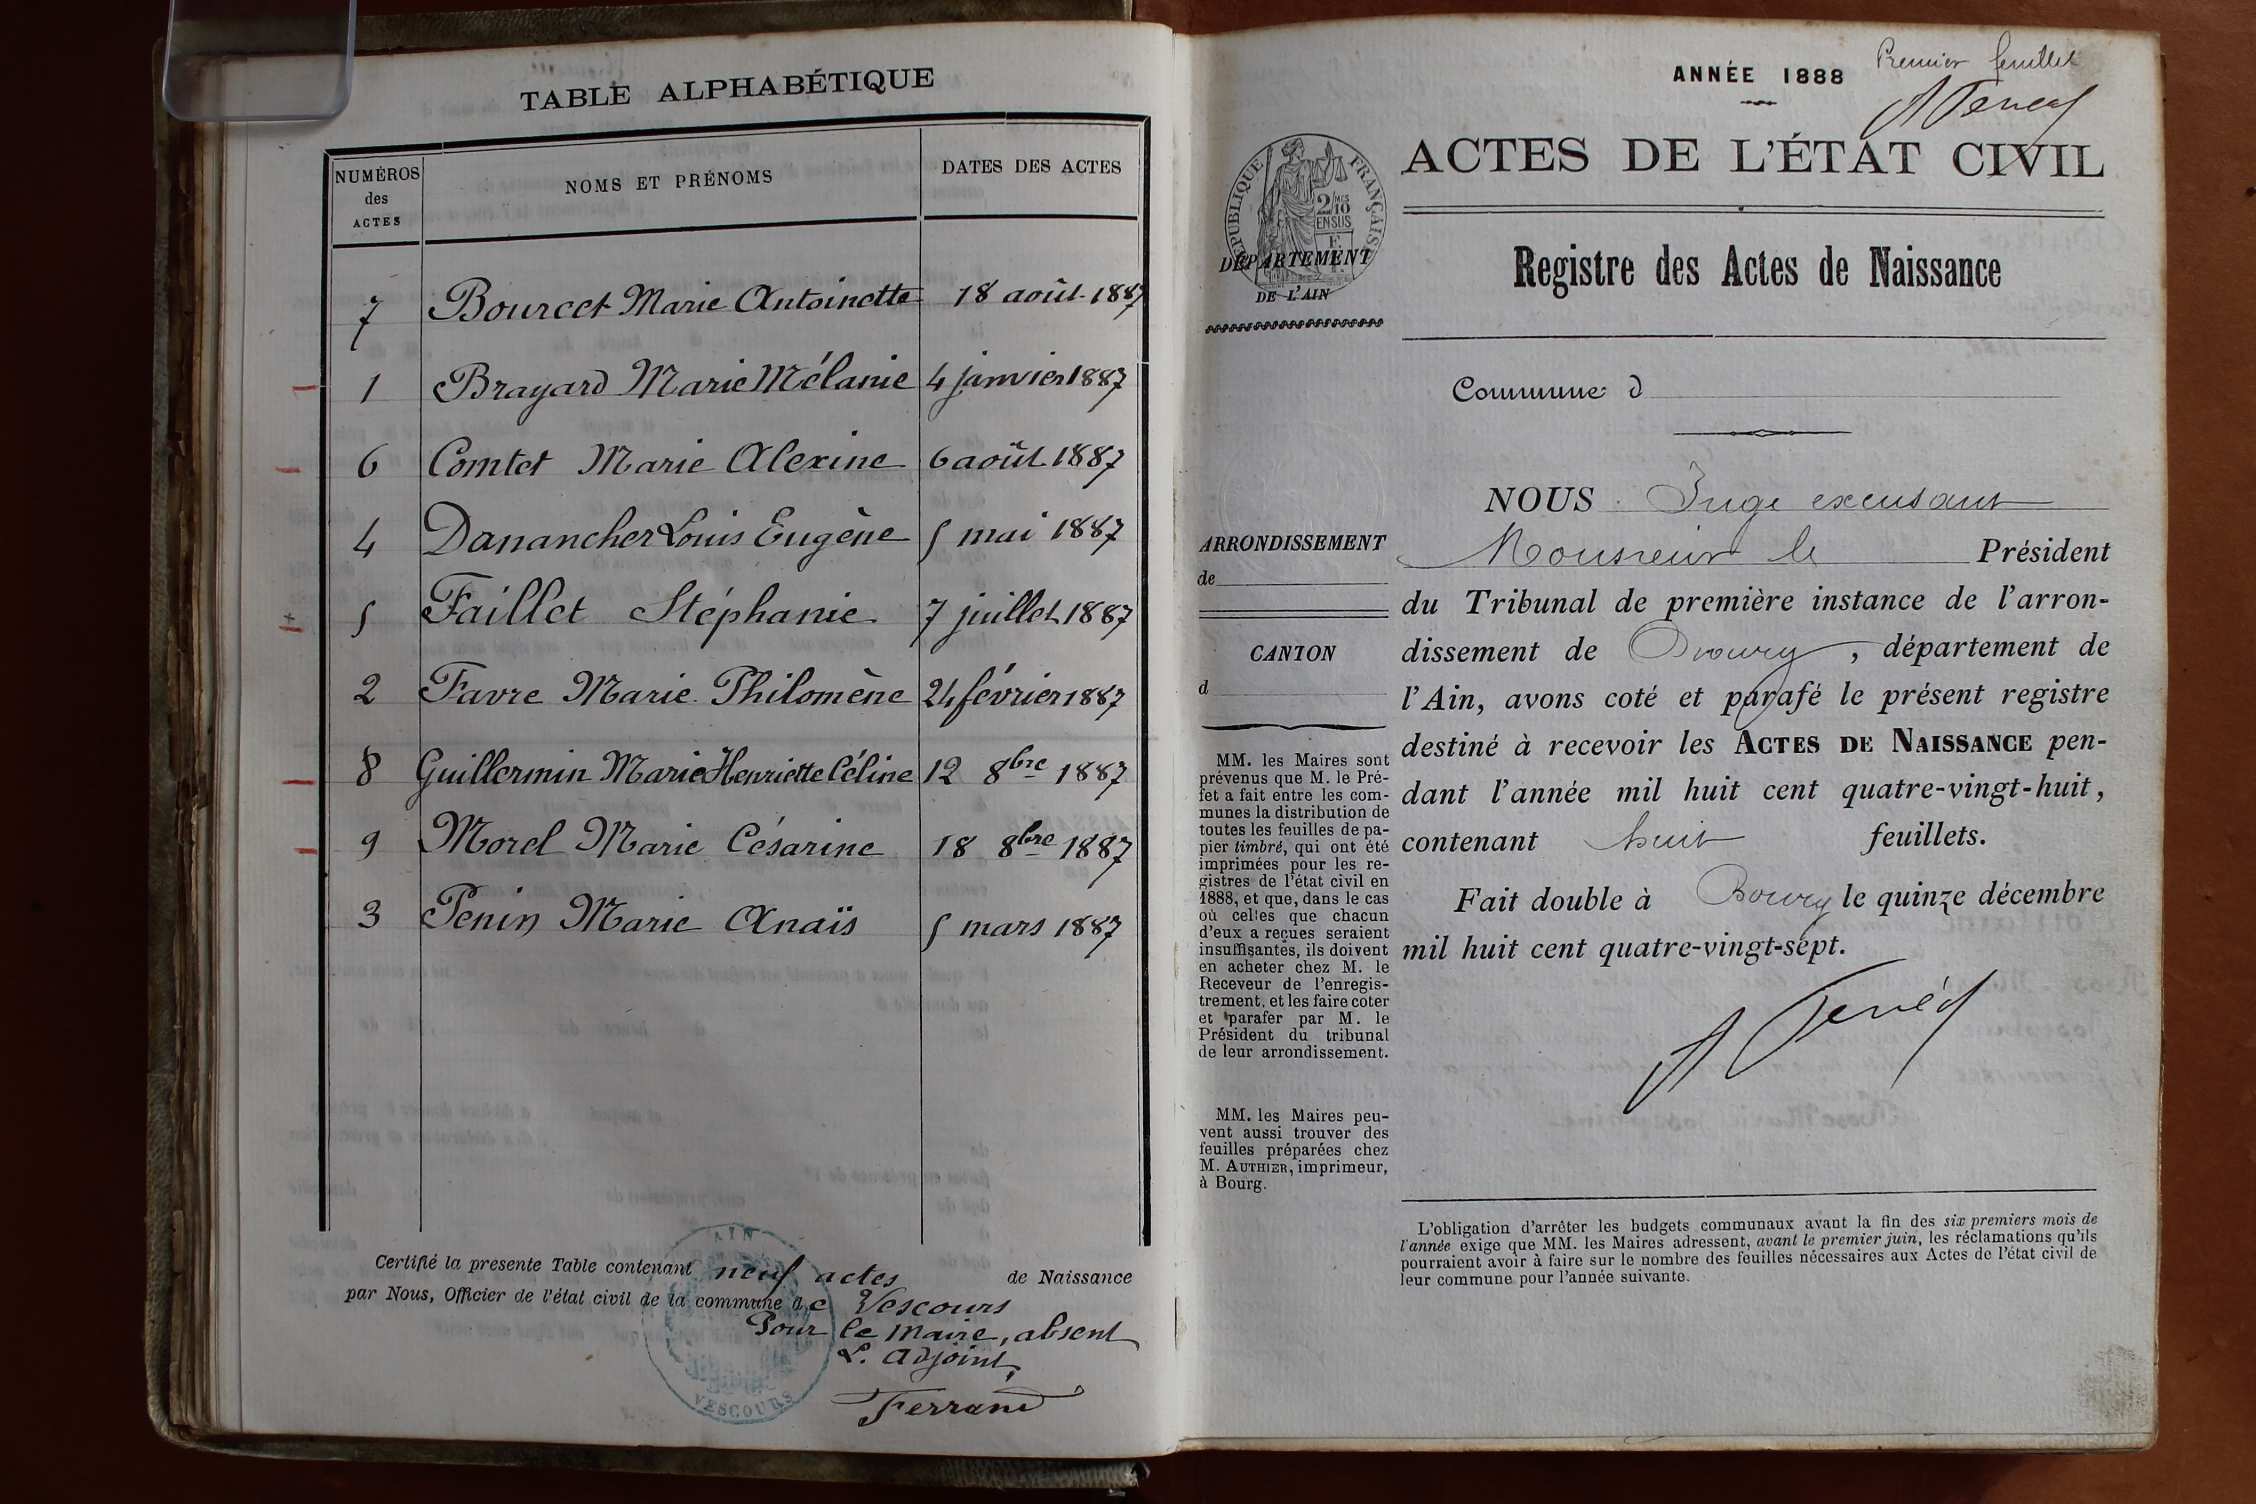 TABLE ALPHABÉTIQUE
NUMÉROS des ACTES
NOMS ET PRÉNOMS
DATES DES ACTES
7 Bourcet Marie Antoinette 18 août 1887
1 Brayard Marie Mélanie 4 janvier 1887
6 Comtet Marie Alexine 6 août 1887
4 Danancher Louis Eugène 5 mai 1887
5 Faillet Stéphanie 7 juillet 1887
2 Favre Marie Philomène 24 février 1887
8 Guillermin Marie Henriette Céline 12 8bre 1887
9 Morel Marie Césarine 18 8bre 1887
3 Penin Marie Anaïs 5 mars 1887
Certifié la presente Table contenant neuf actes de Naissance
par Nous, Officier de l'état civil de la commune de Vescours
Pour le maire, absent
L. adjoint,
Ferrand
AIN
VESCOURS
Premier feuillet
ANNÉE 1888
ACTES DE L'ÉTAT CIVIL
RÉPUBLIQUE FRANÇAISE
2/10 MES
EN SUS
DÉPARTEMENT
DE L'AIN
Registre des Actes de Naissance
Commune d
NOUS Juge excusant
Monsieur le Président
du Tribunal de première instance de l'arron-
dissement de Bourg, département de
l'Ain, avons coté et parafé le présent registre
destiné à recevoir les ACTES DE NAISSANCE pen-
dant l'année mil huit cent quatre-vingt-huit,
contenant huit feuillets.
Fait double à Bourg le quinze décembre
mil huit cent quatre-vingt-sept.
ARRONDISSEMENT
de
CANTON
d
MM. les Maires sont
prévenus que M. le Pré-
fet a fait entre les com-
munes la distribution de
toutes les feuilles de pa-
pier timbré, qui ont été
imprimées pour les re-
gistres de l'état civil en
1888, et que, dans le cas
où celles que chacun
d'eux a reçues seraient
insuffisantes, ils doivent
en acheter chez M. le
Receveur de l'enregis-
trement, et les faire coter
et parafer par M. le
Président du tribunal
de leur arrondissement.
MM. les Maires peu-
vent aussi trouver des
feuilles préparées chez
M. AUTHIER, imprimeur,
à Bourg.
L'obligation d'arrêter les budgets communaux avant la fin des six premiers mois de
l'année exige que MM. les Maires adressent, avant le premier juin, les réclamations qu'ils
pourraient avoir à faire sur le nombre des feuilles nécessaires aux Actes de l'état civil de
leur commune pour l'année suivante.